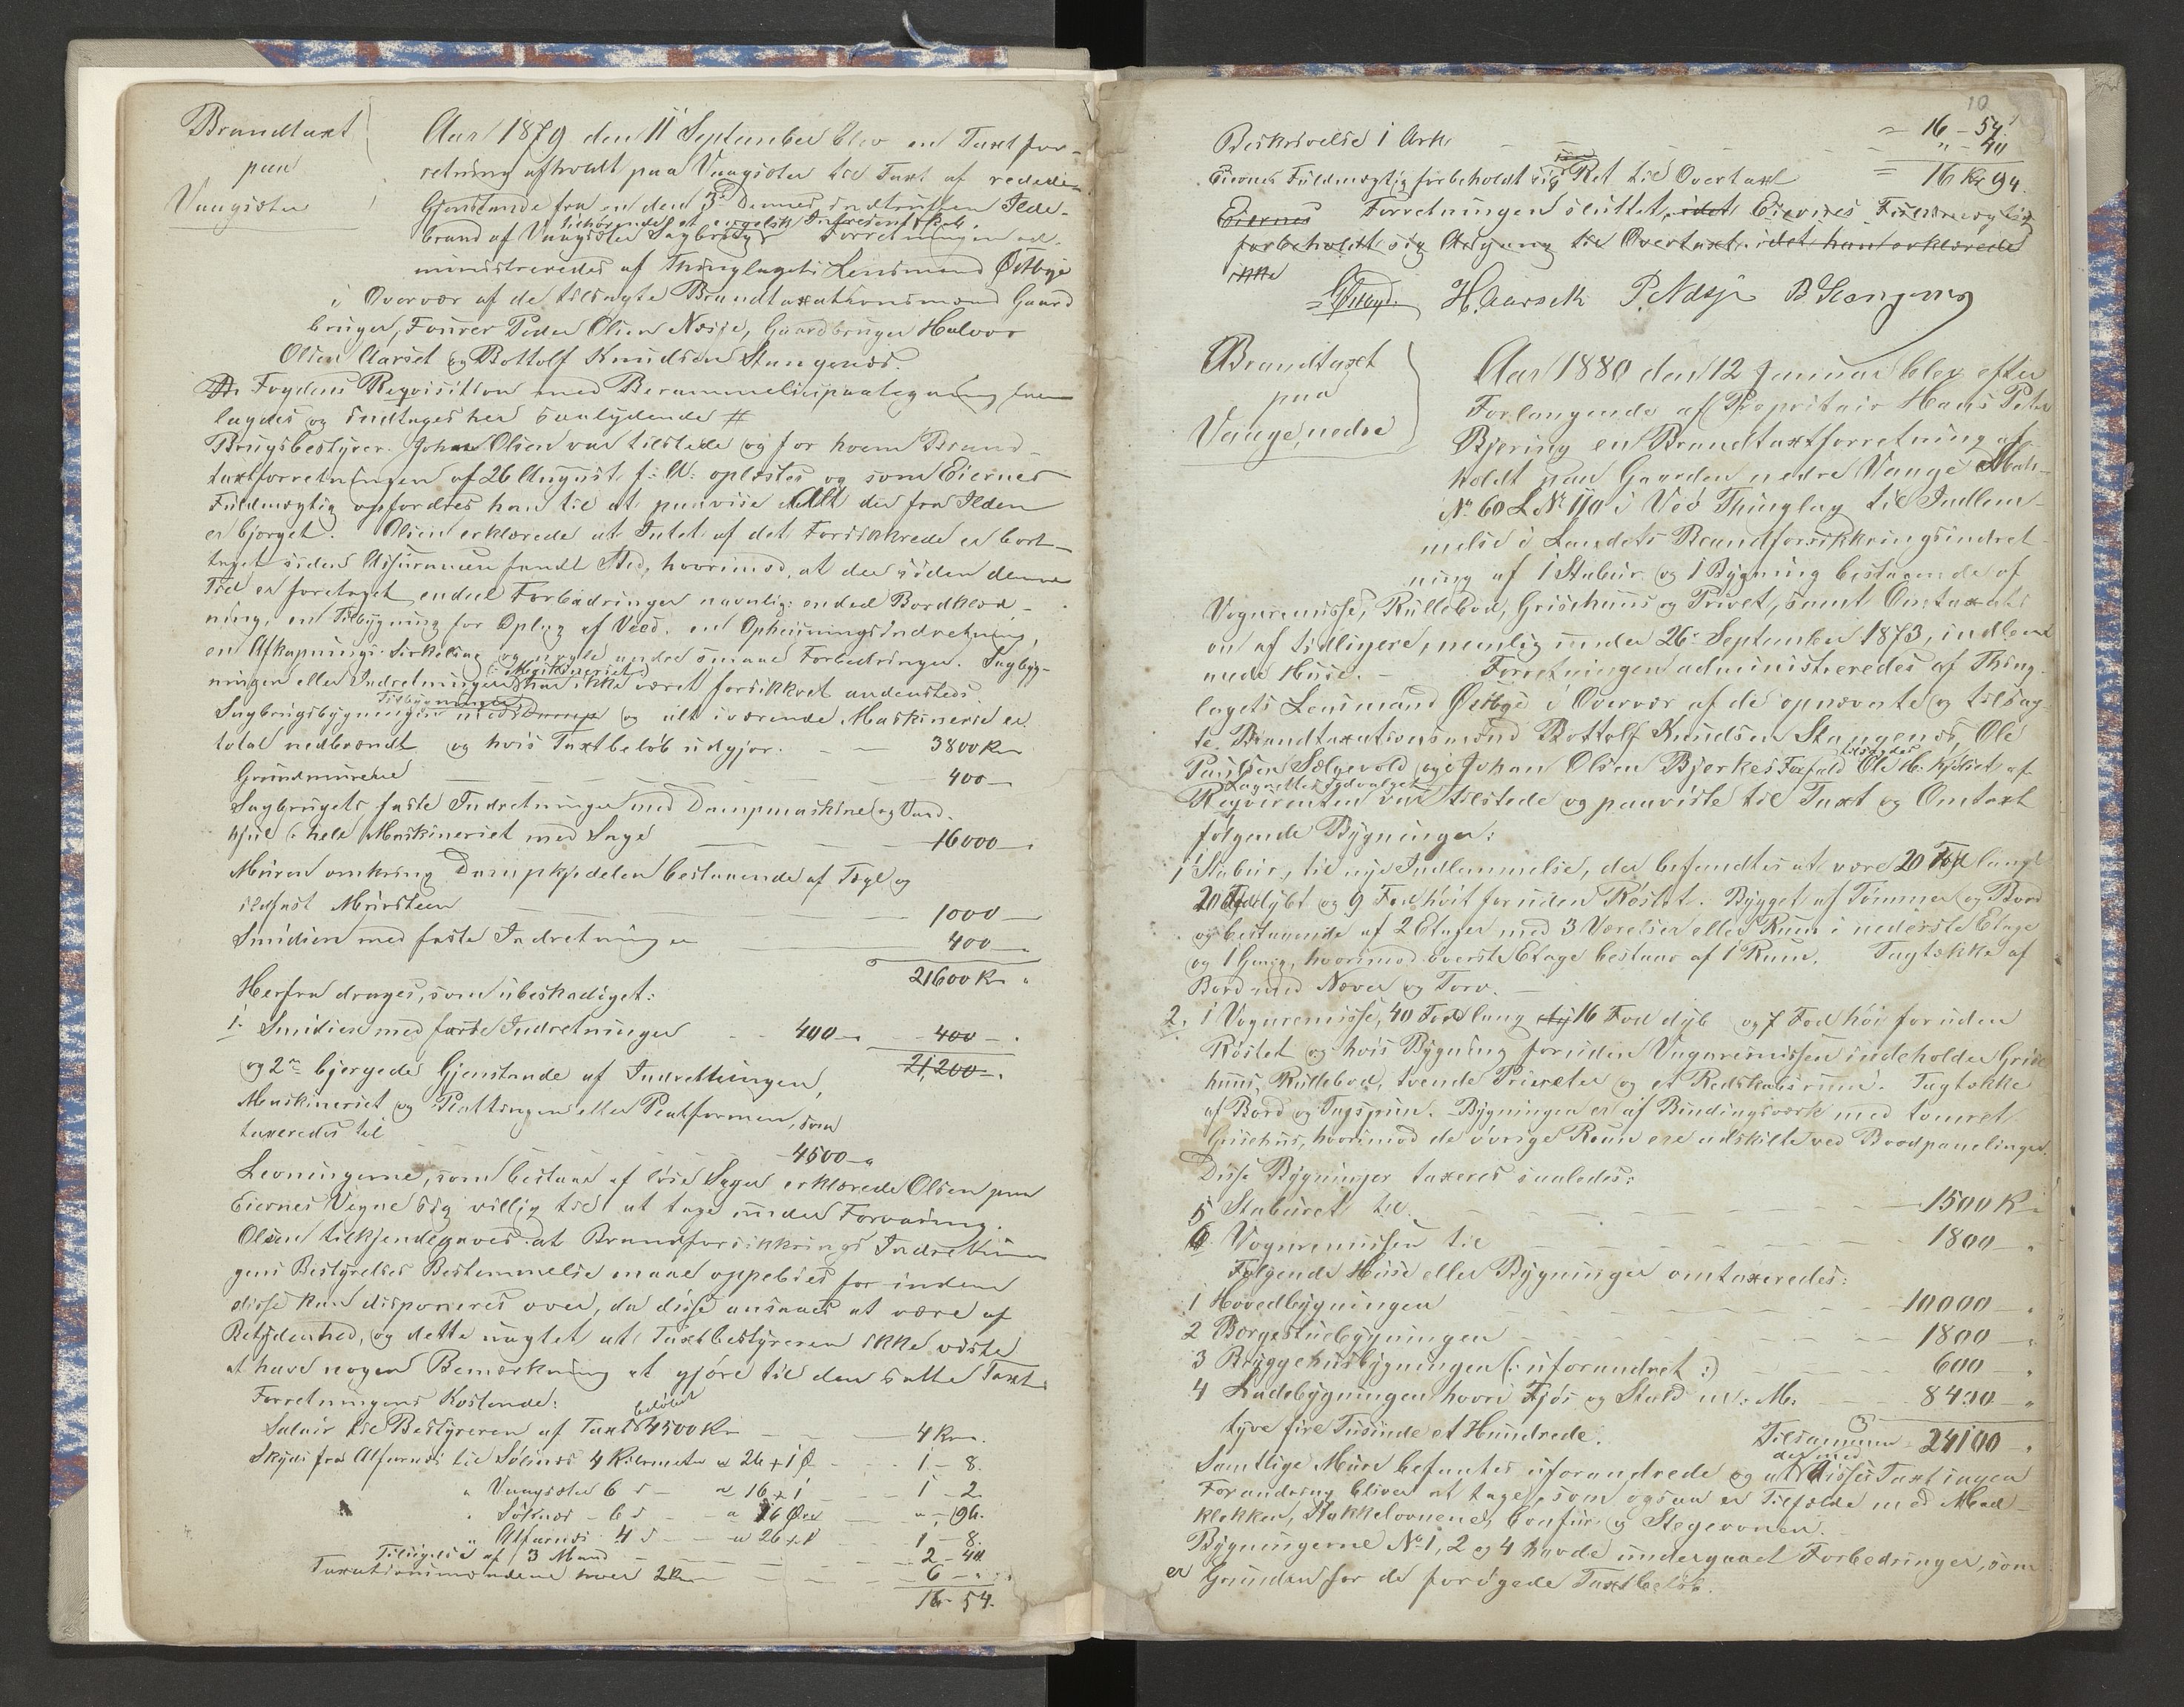 Brandtaxt
paa
Vaagsæter
Aar 1879 den 11 September blev en Taxtfor-
retning afholdt paa Vaagsæter til Taxt af reddede
Gjenstande fra en den 3d Dennes indtruffen Ilde-
tilhørende et engelsk Interessentskab.
brand af Vaagsæter Sagbrug Forretningen ad-
ministreredes af Thinglagets Lensmand Østbye
i Overvær af de tilsagte Brandtaxationsmænd Gaard
bruger, Fourer Peder Olsen Næsje, Gaardbruger Halvor
Olsen Aarset og Bottolf Knudsen Stangenæs.
Fogdens Reqvisition med Berammelsespaategning frem
lagdes og indtages her saalydende #
Brugsbestyrer Johan Olsen var tilstede og for hvem Brand-
taxtforretningen af 26 August f: A: oplæstes og som Eiernes
Fuldmægtig opfordres han til at paavise Alt der fra Ilden
er bjerget. Olsen erklærede at Intet af det Forsikrede er bort-
taget siden Assurancen fandt Sted, hvorimod, at der siden denne
Tid er foretaget endeel Forbedringer navnlig: endeel Bordklæd-
ning, en Tilbygning for Oplag af Veed, en Ophejsningsindretning,
en Afkapnings-Sirkelsag og nogle andre smaae Forbedringer. Sagbyg-
Maskineriet
ningen eller Indretningen har ikke været forsikkret andensteds
Tilbygningen
Sagbrugsbygningen med Damp og alt iværende Maskineri er
total nedbrændt og hvis Taxtbeløb udgjør. — — 3800 Kr
Grundmurene — — — 400 —
Sagbrugets faste Indretninger med Dampmaskine og Vand-
hjul (hele Maskineriet med Sage — — 16000 —
Muren omkring Dampkjedelen bestaaende af Tegl og
ildfast Mursteen — — 1000 —
Smidien med faste Indretninger — — 400 —
21600 Kr "
Herfra drages, som ubeskadiget:
1. Smidien med faste Indretninger - - 400 — - 400 - .
og 2n bjergede Gjenstande af Indretningen, 21,200 - .
Maskineriet og Plattingen eller Platformen, som
taxeredes til — — 4500 —
Levningerne, som bestaar af løse Sager erklærede Olsen paa
Eiernes Vegne sig villig til at tage under Forvaring.
Olsen tilkjendegaves at Brandforsikkrings Indretnin
gens Bestyrelses Bestemmelse maae oppebies før inden
disse kan disponeres over, da disse ansaaes at være af
Betydenhed, og dette uagtet at Taxtbestyreren ikke vidste
at have nogen Bemærkning at gjøre til den satte Taxt.
Forretningens Kostende:
beløbet
Salair til Bestyreren af Taxt 4500 Kr — 4 Kr.
Skyds fra Alfarnæs til Sølsnæs 4 Kilometer a 26 + 1 Ø - 1 - 8.
" Vaagsæter 6 d - a 16 + 1 - 1 - 2.
" Sølsnæs - 6 d - a 16 Øre — " - 96.
" Alfarnæs 4 d - a 26 + 1 - 1 - 8.
Tilsigelse af 3 Mand — - 2 - 40
Taxationsmændene hver 2 Kr — - 6 - " .
16 - 54.
10
= 16 - 54.
Beskrivelse 1 Ark — " - 40
Eiernes Fuldmægtig forbeholdt sig Ret til Overtaxt = 16 Kr 94.
Eiernes Forretningen sluttet, idet Eiernes Fuldmægtig
forbeholdt sig Adgang til Overtaxt idet han erklærede
ikke
Østbye. H. Aarseth P. Næsje B Stangenæs
Brandtaxt
paa
Vaage, nedre
Aar 1880 den 12 Januar blev efter
Forlangende af Propritair Hans Peter
Bjering en Brandtaxtforretning af-
holdt paa Gaarden nedre Vaage Matr-
No 60 L No 110 i Veø Thinglag til Indlem-
melse i Landets Brandforsikkringsindret-
ning af 1 Stabur og 1 Bygning bestaaende af
Vognremisse, Rullebod, Grisehuus og Privet, samt Omtaxati
on af tidligere, nemlig under 26 September 1873, indlem
mede Huse. - Forretningen administreredes af Thing-
lagets Lensmand Østbye i Overvær af de opnævnte og tilsag-
te Brandtaxationsmænd Bottolf Knudsen Stangenæs, Ole
tilsagdes
Paulsen Sølgevold og i Johan Olsen Bjerkes Forfald Ole H. Kjølset af
Reqvirenten var tilstede og paaviste til Taxt og Omtaxt
følgende Bygninger:
1 Stabur, til nye Indlemmelse, der befandtes at være 20 Fod langt
20 Fod dybt og 9 Fod høit foruden Røstet. Bygget af Tømmer og Bord
og bestaaende af 2 Etager med 3 Værelser eller Rum i nederste Etage
og 1 Gang, hvorimod øverste Etage bestaar af 1 Rum. Tagtække af
Bord med Næver og Torv. —
2. 1 Vognremisse, 40 Fod lang 16 Fod dyb og 7 Fod høi foruden
Røstet og hvis Bygning foruden Vognremissen indeholder Grise
huus, Rullebod, tvende Priveter og et Redskabsrum. Tagtække
af Bord og Tagspaan. Bygningen er af Bindingsværk med tømret
Grisehus, hvorimod de øvrige Rum ere adskilte ved Bordpanelinger.
Disse Bygninger taxeres saaledes:
5 Staburet til — — 1500 Kr
6 Vognremissen til — — 1800 — "
Følgende Huse eller Bygninger omtaxeredes:
1 Hovedbygningen — — 10000 — "
2 Borgestuebygningen — — 1800 — "
3 Bryggehusbygningen (: uforandret :) — 600 — "
4 Ladebygningen hvori Fjøs og Stald m: M: — 8400 — "
tyve fire Tusinde et Hundrede. Tilsammen 24100 — "
der med
Samtlige Mure befantes uforandrede og at disses Taxt ingen
Forandring bliver at tage, som ogsaa er Tilfælde med Mad-
klokken, Kakkelovnene, Comfur og Stegeovnen.
Bygningerne No 1, 2 og 4 havde undergaaet Forbedringer, som
er Grunden for de forøgede Taxtbeløb.